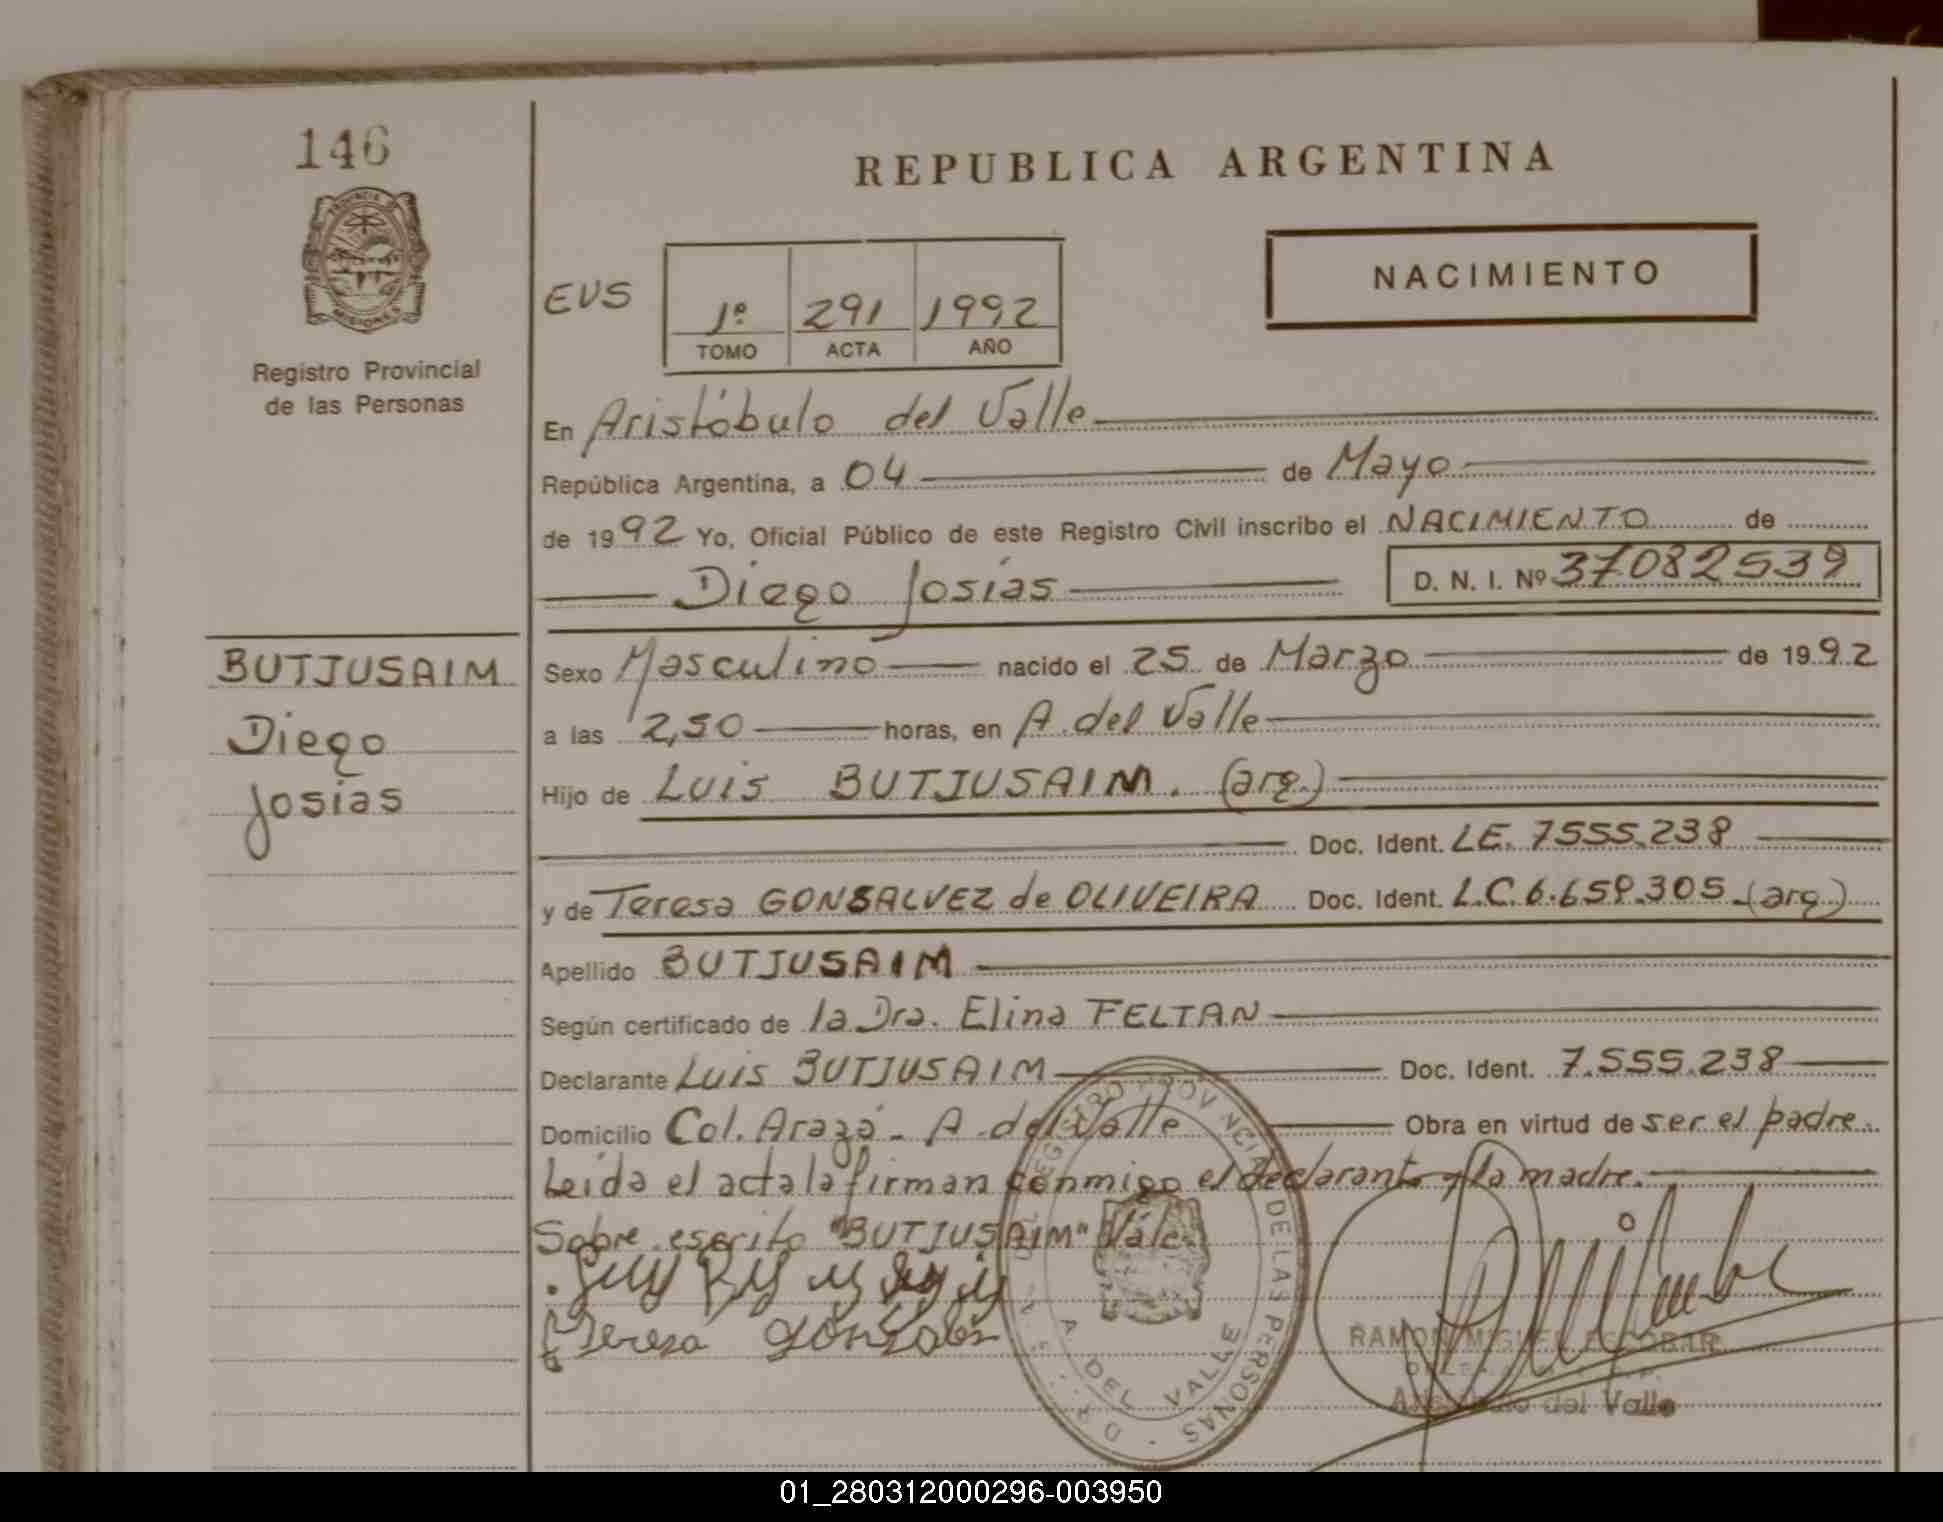 146
REPUBLICA ARGENTINA
PROVINCIA DE
MISIONES
Registro Provincial
de las Personas
NACIMIENTO
EVS
1º 291 1992
TOMO ACTA AÑO
En Aristóbulo del Valle
República Argentina, a 04 de Mayo
de 1992 Yo, Oficial Público de este Registro Civil inscribo el NACIMIENTO de
Diego Josías D. N. I. Nº 37082539
BUTJUSAIM
Diego
Josias
Sexo Masculino nacido el 25 de Marzo de 1992
a las 2,50 horas, en A. del Valle
Hijo de Luis BUTJUSAIM. (arg.)
Doc. Ident. LE. 7555.238
y de Teresa GONSALVEZ de OLIVEIRA Doc. Ident. L.C. 6.659.305 (arg)
Apellido BUTJUSAIM
Según certificado de la Dra. Elina FELTAN
Declarante Luis BUTJUSAIM Doc. Ident. 7.555.238
Domicilio Col. Arazá - A. del Valle Obra en virtud de ser el padre.
Leída el acta la firman conmigo el declarante y la madre.
Sobre escrito "BUTJUSAIM" Vále.
Teresa
REGISTRO PROVINCIAL DE LAS PERSONAS
A. DEL VALLE
RAMON MIGUEL ESCOBAR
del Valle
01_280312000296-003950